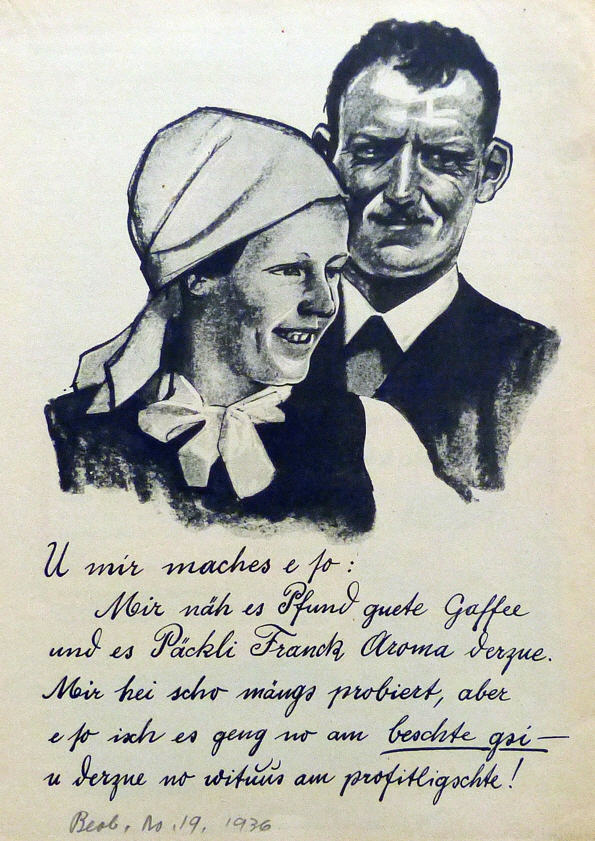 U mir maches e so:
Mir näh es Pfund guete Gaffee
und es Päckli Franck Aroma derzue.
Mir hei scho mängs probiert, aber
e so isch es geng no am beschte gsi—
u derzue no wituus am profitligschte!
Beob. No. 19. 1936